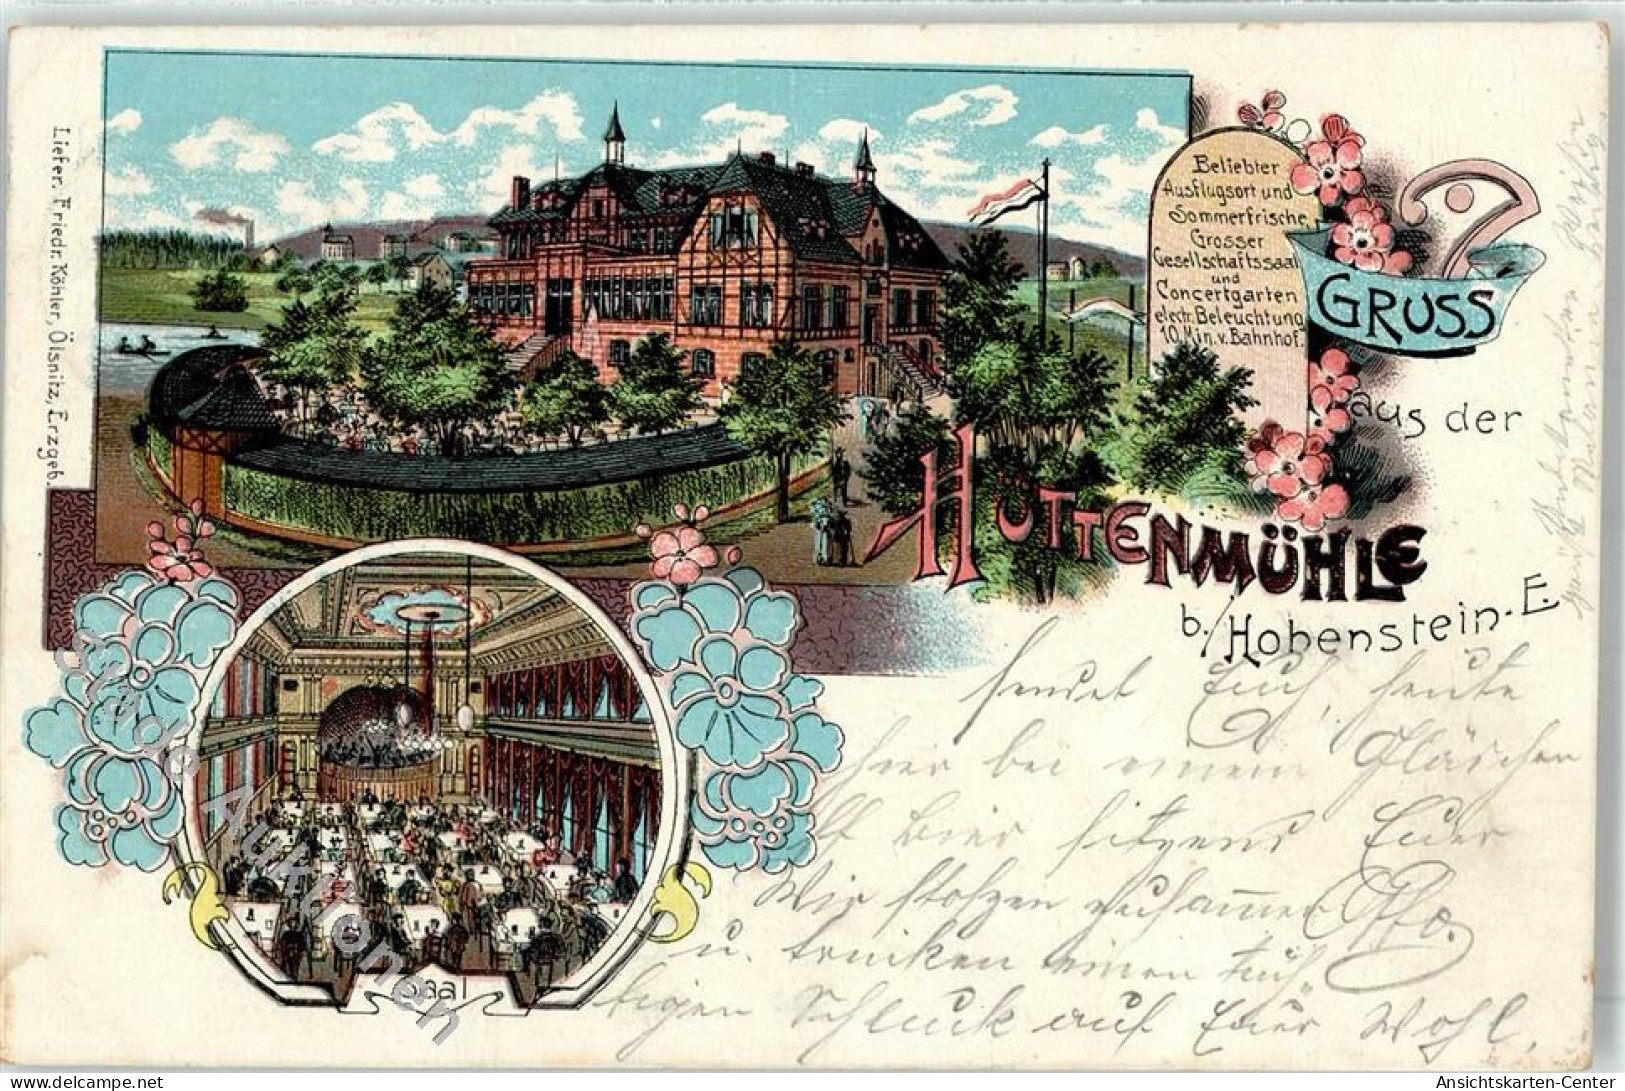 Liefer. Friedr. Köhler, Ölsnitz, Erzgeb.
Beliebter
Ausflugsort und
Sommerfrische,
Grosser
Gesellschaftssaal
und
Concertgarten
electr. Beleuchtung
10 Min. v. Bahnhof.
GRUSS
aus der
HÜTTENMÜHLE
b./Hohenstein-E.
sendet Euch, heute
hier bei einem Gläschen
bier sitzend Euer
Otto.
Wir stoßen zusammen
u. trinken einen tüch-
tigen Schluck auf Euer Wohl.
Saal
oldthing Auktionen
www.delcampe.net
Ansichtskarten-Center